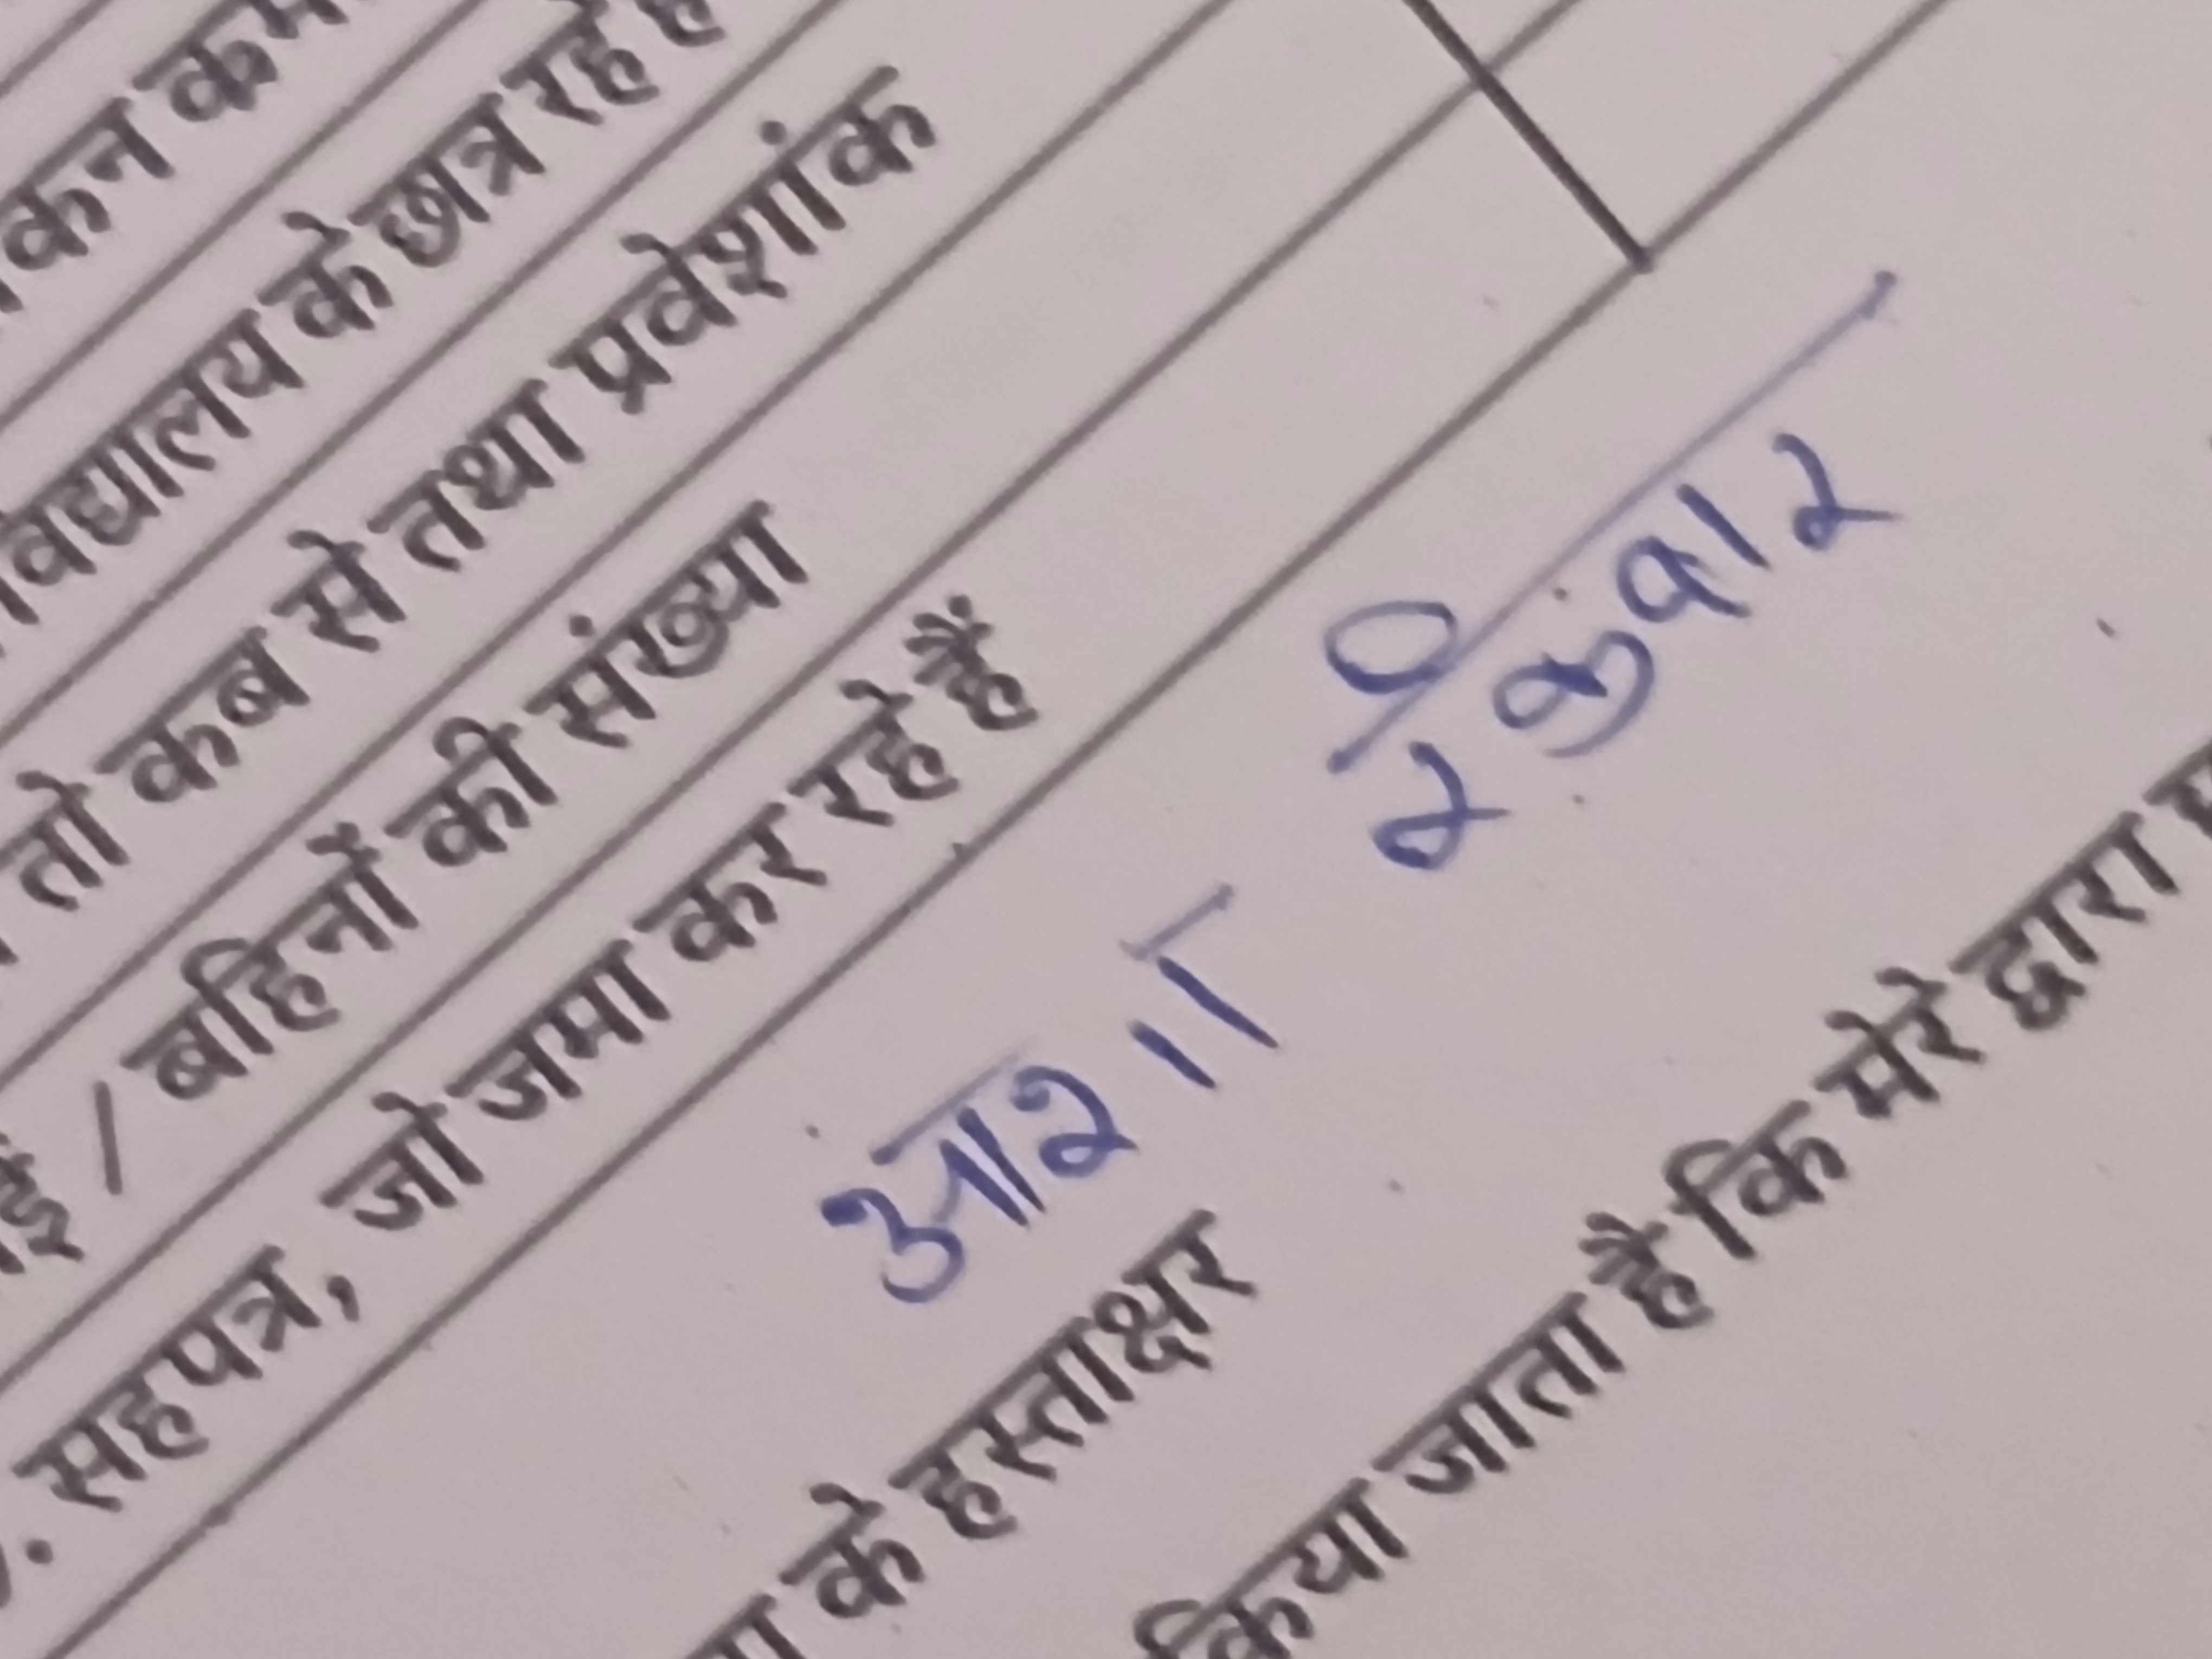 कन
विद्यालय के छात्र रहे
तो कब से तथा प्रवेशांक
/ बहिनों की संख्या
. सहपत्र, जो जमा कर रहे हैं
आशा रैकवार
के हस्ताक्षर
किया जाता है कि मेरे द्वारा